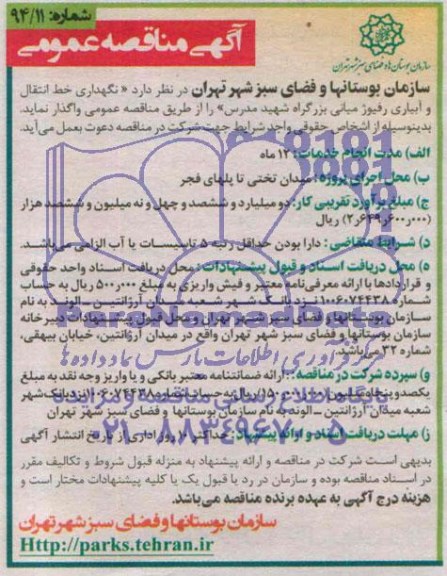 شماره: ۹۴/۱۱
آگهی مناقصه عمومی
سازمان بوستانها و فضای سبز شهر تهران
سازمان بوستانها و فضای سبز شهر تهران در نظر دارد « نگهداری خط انتقال
و آبیاری رفیوژ میانی بزرگراه شهید مدرس» را از طریق مناقصه عمومی واگذار نماید.
بدینوسیله از اشخاص حقوقی واجد شرایط جهت شرکت در مناقصه دعوت بعمل می‌آید.
الف) مدت انجام خدمات: ۱۲ ماه
ب) محل اجرای پروژه: میدان تختی تا پلهای فجر
ج) مبلغ برآورد تقریبی کار: دو میلیارد و ششصد و چهل و نه میلیون و ششصد هزار
(۲٫۶۴۹٫۶۰۰٫۰۰۰) ریال
د) شرایط متقاضی: دارا بودن حداقل رتبه ۵ تاسیسات یا آب الزامی می‌باشد.
ه) محل دریافت اسناد و قبول پیشنهادات: محل دریافت اسناد واحد حقوقی
و قراردادها با ارائه معرفی‌نامه معتبر و فیش واریزی به مبلغ ۵۰۰٫۰۰۰ ریال به حساب
شماره ۱۰۰۶۰۷۴۴۳۸ نزد بانک شهر شعبه میدان آرژانتین ـ الوند به نام
سازمان بوستانها و فضای سبز شهر تهران و محل قبول پیشنهادات دبیرخانه
سازمان بوستانها و فضای سبز شهر تهران واقع در میدان آرژانتین، خیابان بیهقی،
شماره ۳۲ می‌باشد.
و) سپرده شرکت در مناقصه: ارائه ضمانتنامه معتبر بانکی و یا واریز وجه نقد به مبلغ
یکصد و پنجاه میلیون ریال به حساب شماره ۱۰۰۶۰۷۴۴۳۸ نزد بانک شهر
شعبه میدان آرژانتین ـ الوند به نام سازمان بوستانها و فضای سبز شهر تهران
ز) مهلت دریافت اسناد و ارائه پیشنهاد: حداکثر روز اداری از تاریخ انتشار آگهی
بدیهی است شرکت در مناقصه و ارائه پیشنهاد به منزله قبول شروط و تکالیف مقرر
در اسناد مناقصه بوده و سازمان در رد یا قبول یک یا کلیه پیشنهادات مختار است و
هزینه درج آگهی به عهده برنده مناقصه می‌باشد.
سازمان بوستانها و فضای سبز شهر تهران
Http://parks.tehran.ir